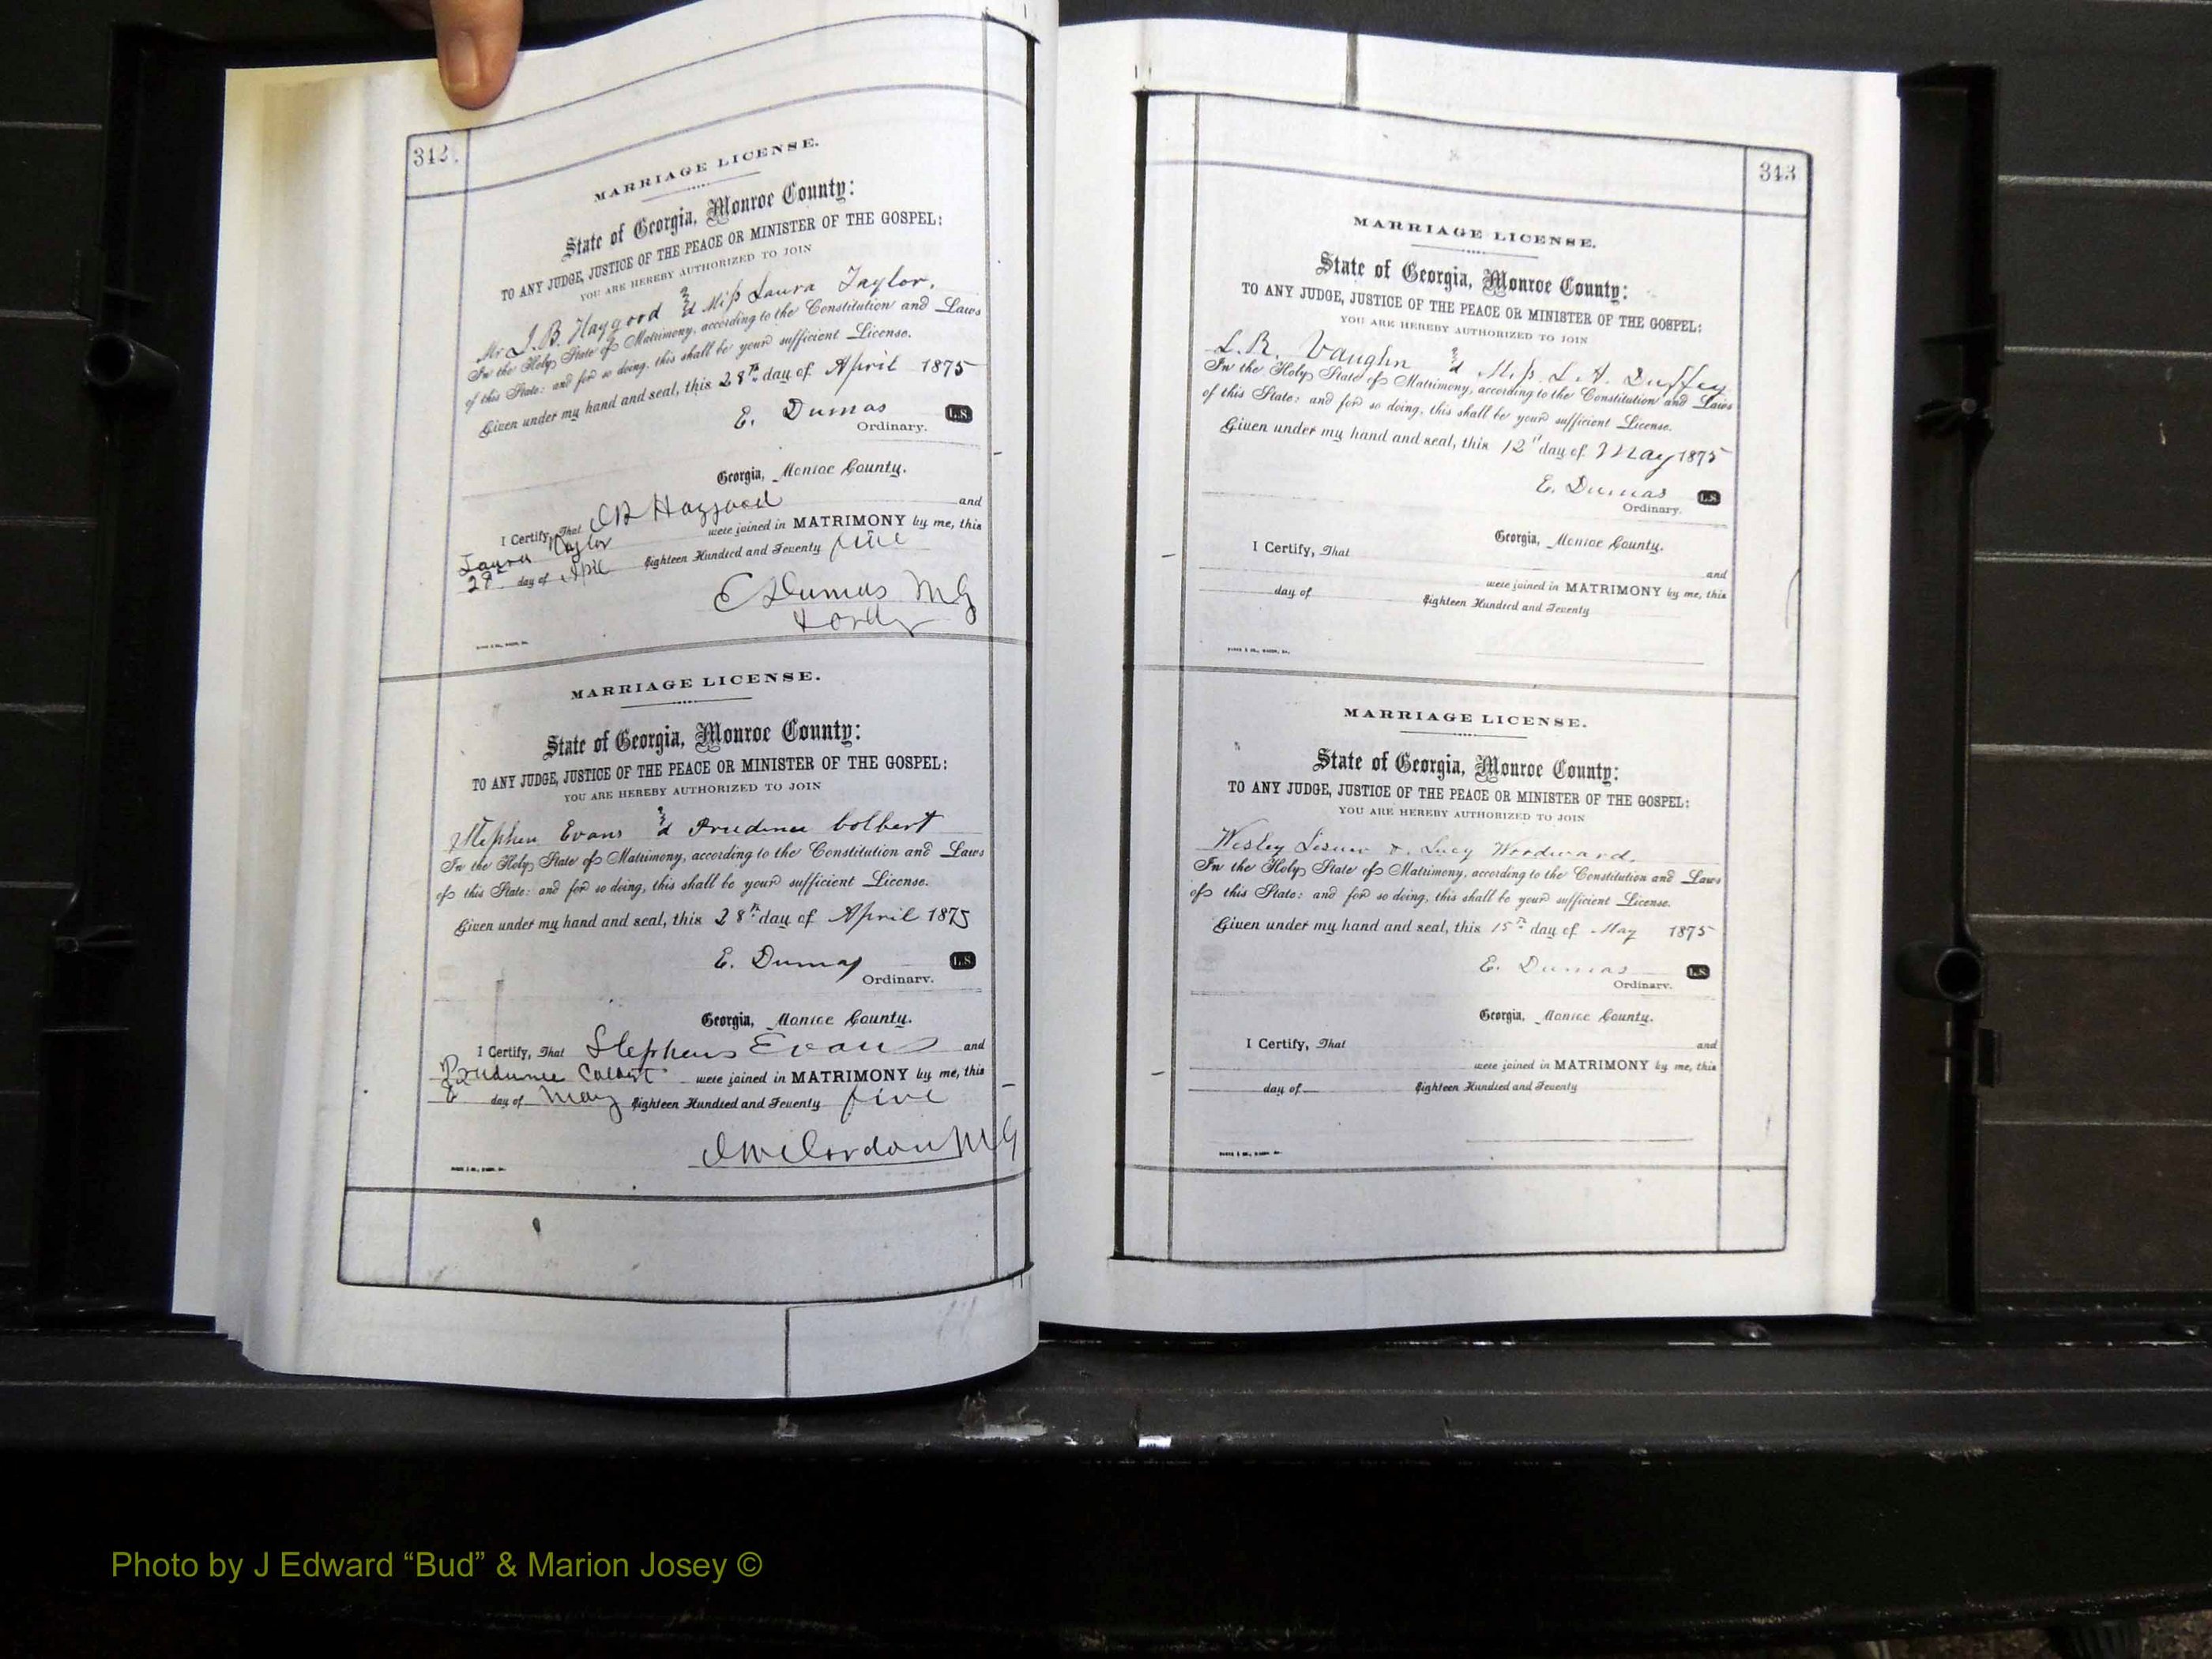 342.
MARRIAGE LICENSE.
State of Georgia, Monroe County:
TO ANY JUDGE, JUSTICE OF THE PEACE OR MINISTER OF THE GOSPEL:
YOU ARE HEREBY AUTHORIZED TO JOIN
Mr J.B. Haygood & Miss Laura Taylor.
In the Holy State of Matrimony, according to the Constitution and Laws
of this State: and for so doing, this shall be your sufficient License.
Given under my hand and seal, this 28th day of April 1875
E. Dumas L.S.
Ordinary.
Georgia, Monroe County.
I Certify, That J B Haygood and
Laura Taylor were joined in MATRIMONY by me, this
29 day of April Eighteen Hundred and Seventy five
E Dumas M G
MARRIAGE LICENSE.
State of Georgia, Monroe County:
TO ANY JUDGE, JUSTICE OF THE PEACE OR MINISTER OF THE GOSPEL:
YOU ARE HEREBY AUTHORIZED TO JOIN
Stephen Evans & Prudence Colbert
In the Holy State of Matrimony, according to the Constitution and Laws
of this State: and for so doing, this shall be your sufficient License.
Given under my hand and seal, this 28th day of April 1875
E. Dumas L.S.
Ordinary.
Georgia, Monroe County.
I Certify, That Stephens Evans and
Prudence Colbert were joined in MATRIMONY by me, this
day of May Eighteen Hundred and Seventy five
M G
343
MARRIAGE LICENSE.
State of Georgia, Monroe County:
TO ANY JUDGE, JUSTICE OF THE PEACE OR MINISTER OF THE GOSPEL:
YOU ARE HEREBY AUTHORIZED TO JOIN
L.R. Vaughn & Miss L.A. Duffey
In the Holy State of Matrimony, according to the Constitution and Laws
of this State: and for so doing, this shall be your sufficient License.
Given under my hand and seal, this 12th day of May 1875
E. Dumas L.S.
Ordinary.
Georgia, Monroe County.
I Certify, That
and
were joined in MATRIMONY by me, this
day of Eighteen Hundred and Seventy
MARRIAGE LICENSE.
State of Georgia, Monroe County:
TO ANY JUDGE, JUSTICE OF THE PEACE OR MINISTER OF THE GOSPEL:
YOU ARE HEREBY AUTHORIZED TO JOIN
Wesley Lesuer & Lucy Woodward.
In the Holy State of Matrimony, according to the Constitution and Laws
of this State: and for so doing, this shall be your sufficient License.
Given under my hand and seal, this 15th day of May 1875
E. Dumas L.S.
Ordinary.
Georgia, Monroe County.
I Certify, That and
were joined in MATRIMONY by me, this
day of Eighteen Hundred and Seventy
Photo by J Edward “Bud” & Marion Josey ©